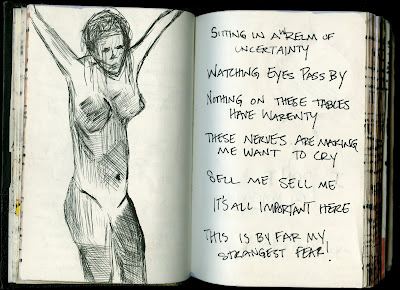 SITTING IN A RELM OF
UNCERTAINTY
WATCHING EYES PASS BY
NOTHING ON THESE TABLES
HAVE WARENTY
THESE NERVES ARE MAKING
ME WANT TO CRY
SELL ME SELL ME
IT'S ALL IMPORTANT HERE
THIS IS BY FAR MY
STRANGEST FEAR!